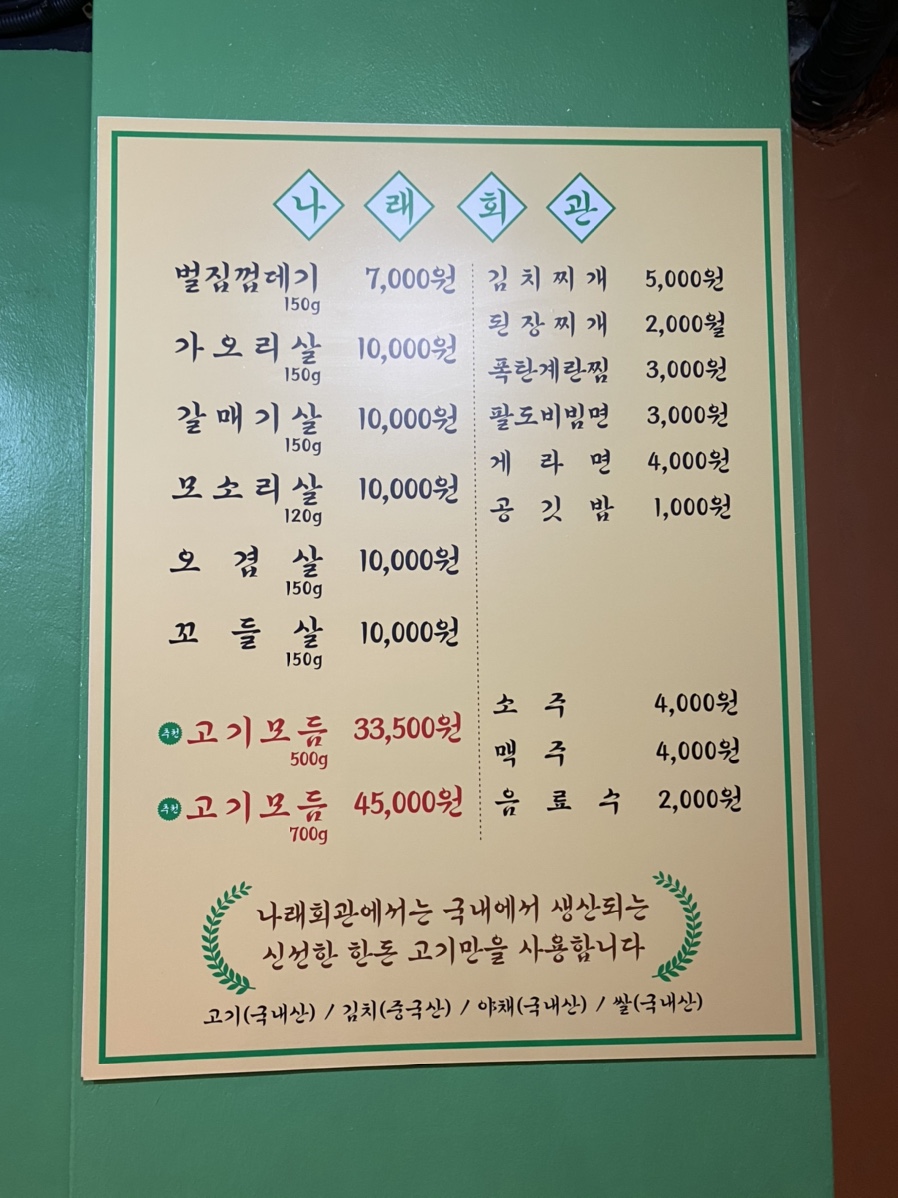 나래회관
벌집껍데기 7,000원
150g
가오리살 10,000원
150g
갈매기살 10,000원
150g
모소리살 10,000원
120g
오겹살 10,000원
150g
꼬들살 10,000원
150g
추천 고기모듬 33,500원
500g
추천 고기모듬 45,000원
700g
김치찌개 5,000원
된장찌개 2,000월
폭탄계란찜 3,000원
팔도비빔면 3,000원
게라면 4,000원
공깃밥 1,000원
소주 4,000원
맥주 4,000원
음료수 2,000원
나래회관에서는 국내에서 생산되는
신선한 한돈 고기만을 사용합니다
고기(국내산) / 김치(중국산) / 야채(국내산) / 쌀(국내산)